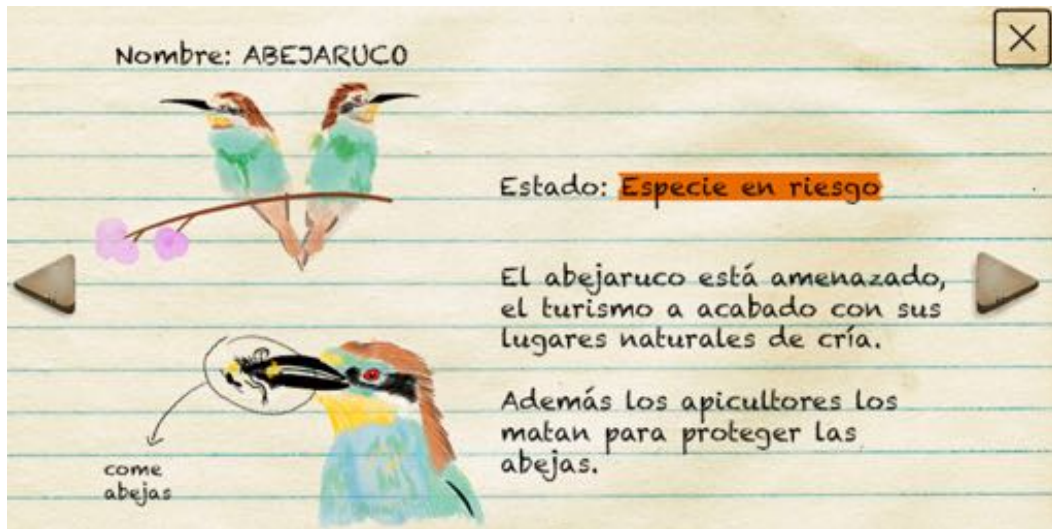 Nombre: ABEJARUCO
Estado: Especie en riesgo
El abejaruco está amenazado,
el turismo a acabado con sus
lugares naturales de cría.
Además los apicultores los
matan para proteger las
abejas.
come
abejas